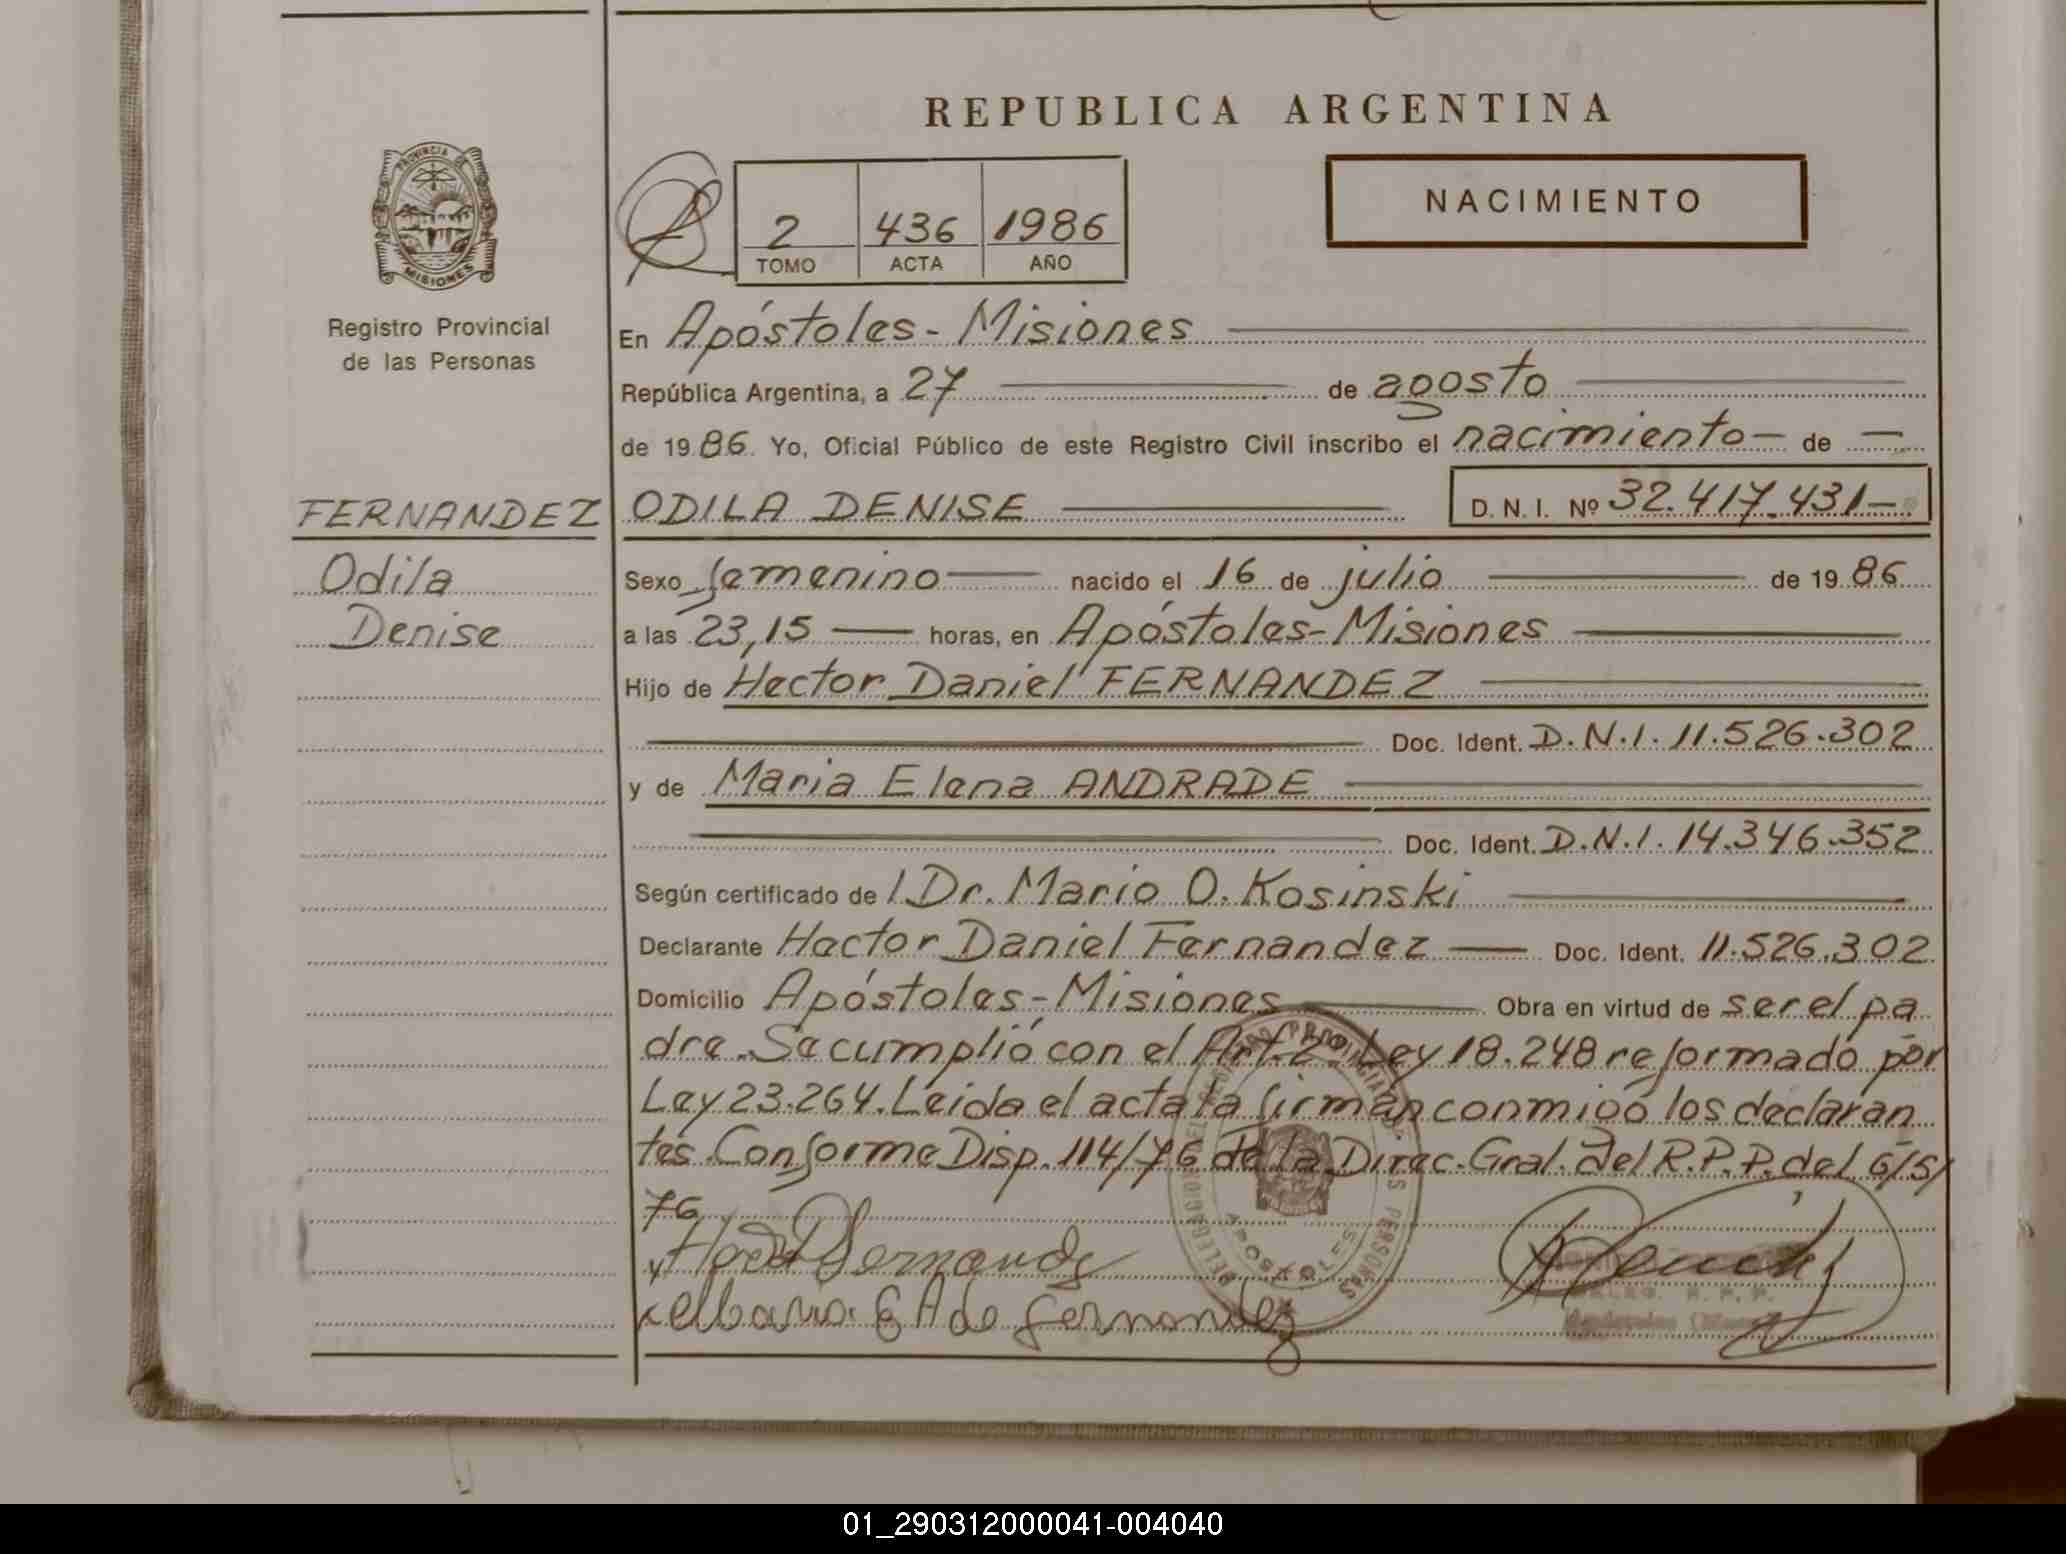 REPUBLICA ARGENTINA
PROVINCIA DE
MISIONES
Registro Provincial
de las Personas
2 436 1986
TOMO ACTA AÑO
NACIMIENTO
En Apóstoles - Misiones
República Argentina, a 27 de agosto
de 1986. Yo, Oficial Público de este Registro Civil inscribo el nacimiento - de -
FERNANDEZ
Odila
Denise
ODILA DENISE D. N. I. Nº 32.417.431-
Sexo femenino nacido el 16 de julio de 1986
a las 23,15 horas, en Apóstoles - Misiones
Hijo de Hector Daniel FERNANDEZ
Doc. Ident. D.N.I. 11.526.302
y de Maria Elena ANDRADE
Doc. Ident. D.N.I. 14.346.352
Según certificado de / Dr. Mario O. Kosinski
Declarante Hector Daniel Fernandez Doc. Ident. 11.526.302
Domicilio Apóstoles - Misiones Obra en virtud de ser el pa
dre. Se cumplió con el Art. 2º Ley 18.248 reformado por
Ley 23.264. Leida el acta la firman conmigo los declaran
tes. Conforme Disp. 114/76 de la Direc. Gral. del R.P.P. del 6/5/
76
DELEGACION DEL REGISTRO PROVINCIAL DE LAS PERSONAS
APOSTOLES
E A de Fernandez
R. P. P.
01_290312000041-004040